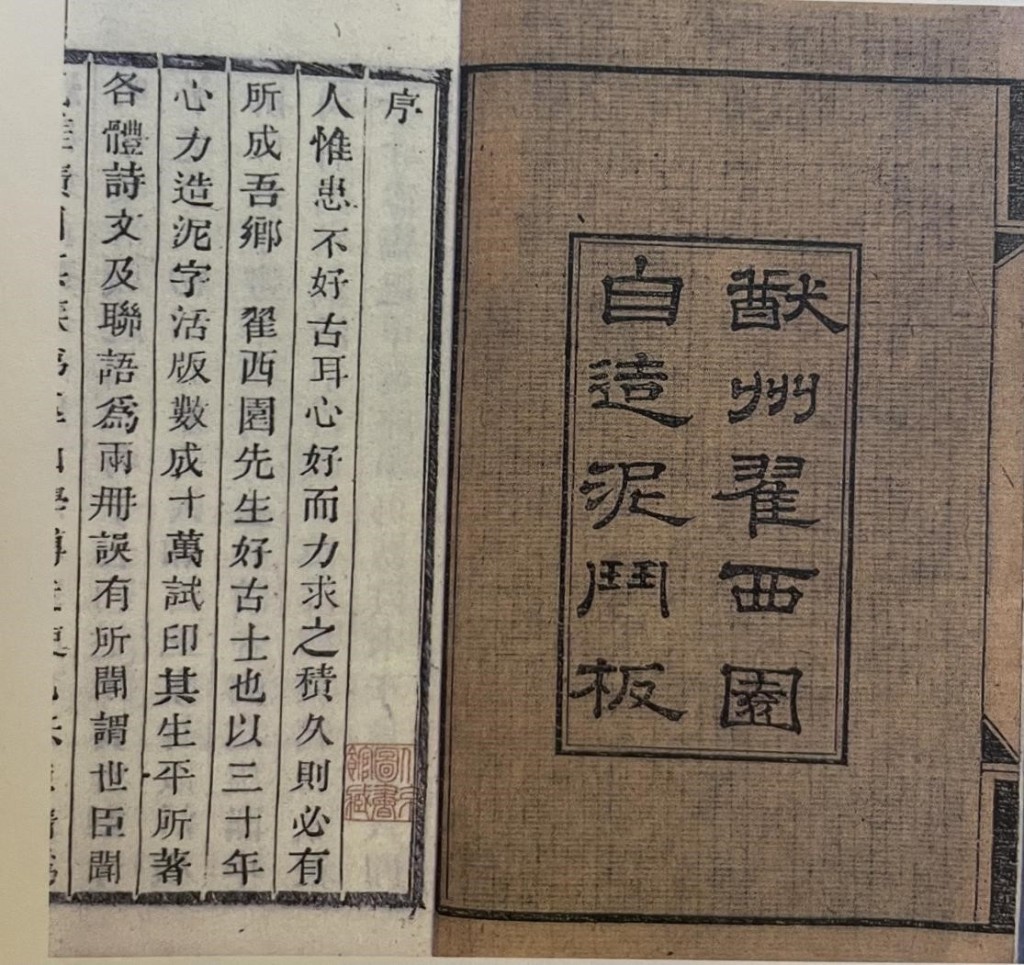 猷州翟西園
自造泥鬥板
序
人惟患不好古耳心好而力求之積久則必有
所成吾鄉 翟西園先生好古士也以三十年
心力造泥字活版數成十萬試印其生平所著
各體詩文及聯語為兩冊誤有所聞謂世臣聞